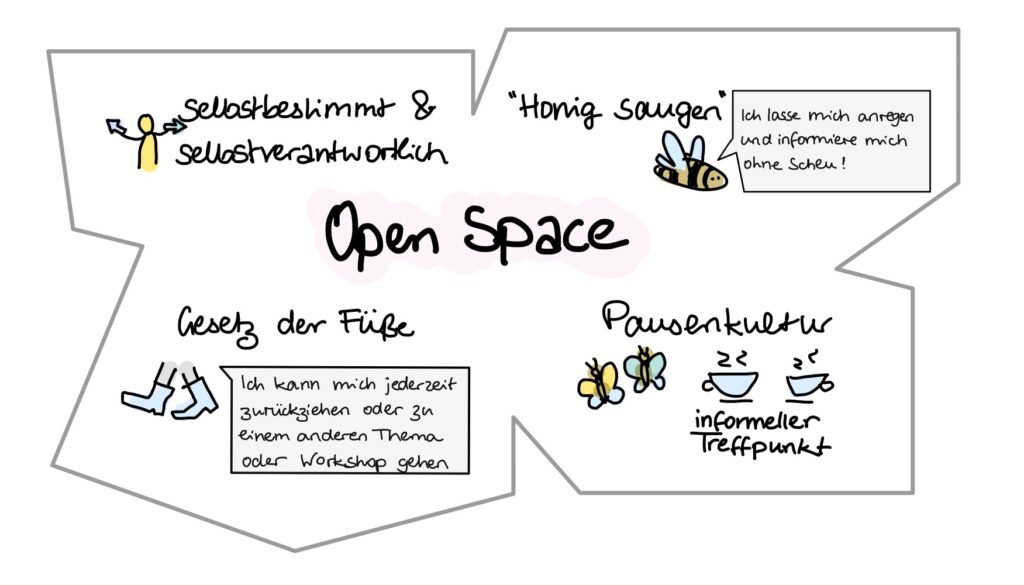 selbstbestimmt &
selbstverantwortlich
"Honig saugen"
Ich lasse mich anregen
und informiere mich
ohne Scheu!
Open Space
Gesetz der Füße
Ich kann mich jederzeit
zurückziehen oder zu
einem anderen Thema
oder Workshop gehen
Pausenkultur
informeller
Treffpunkt